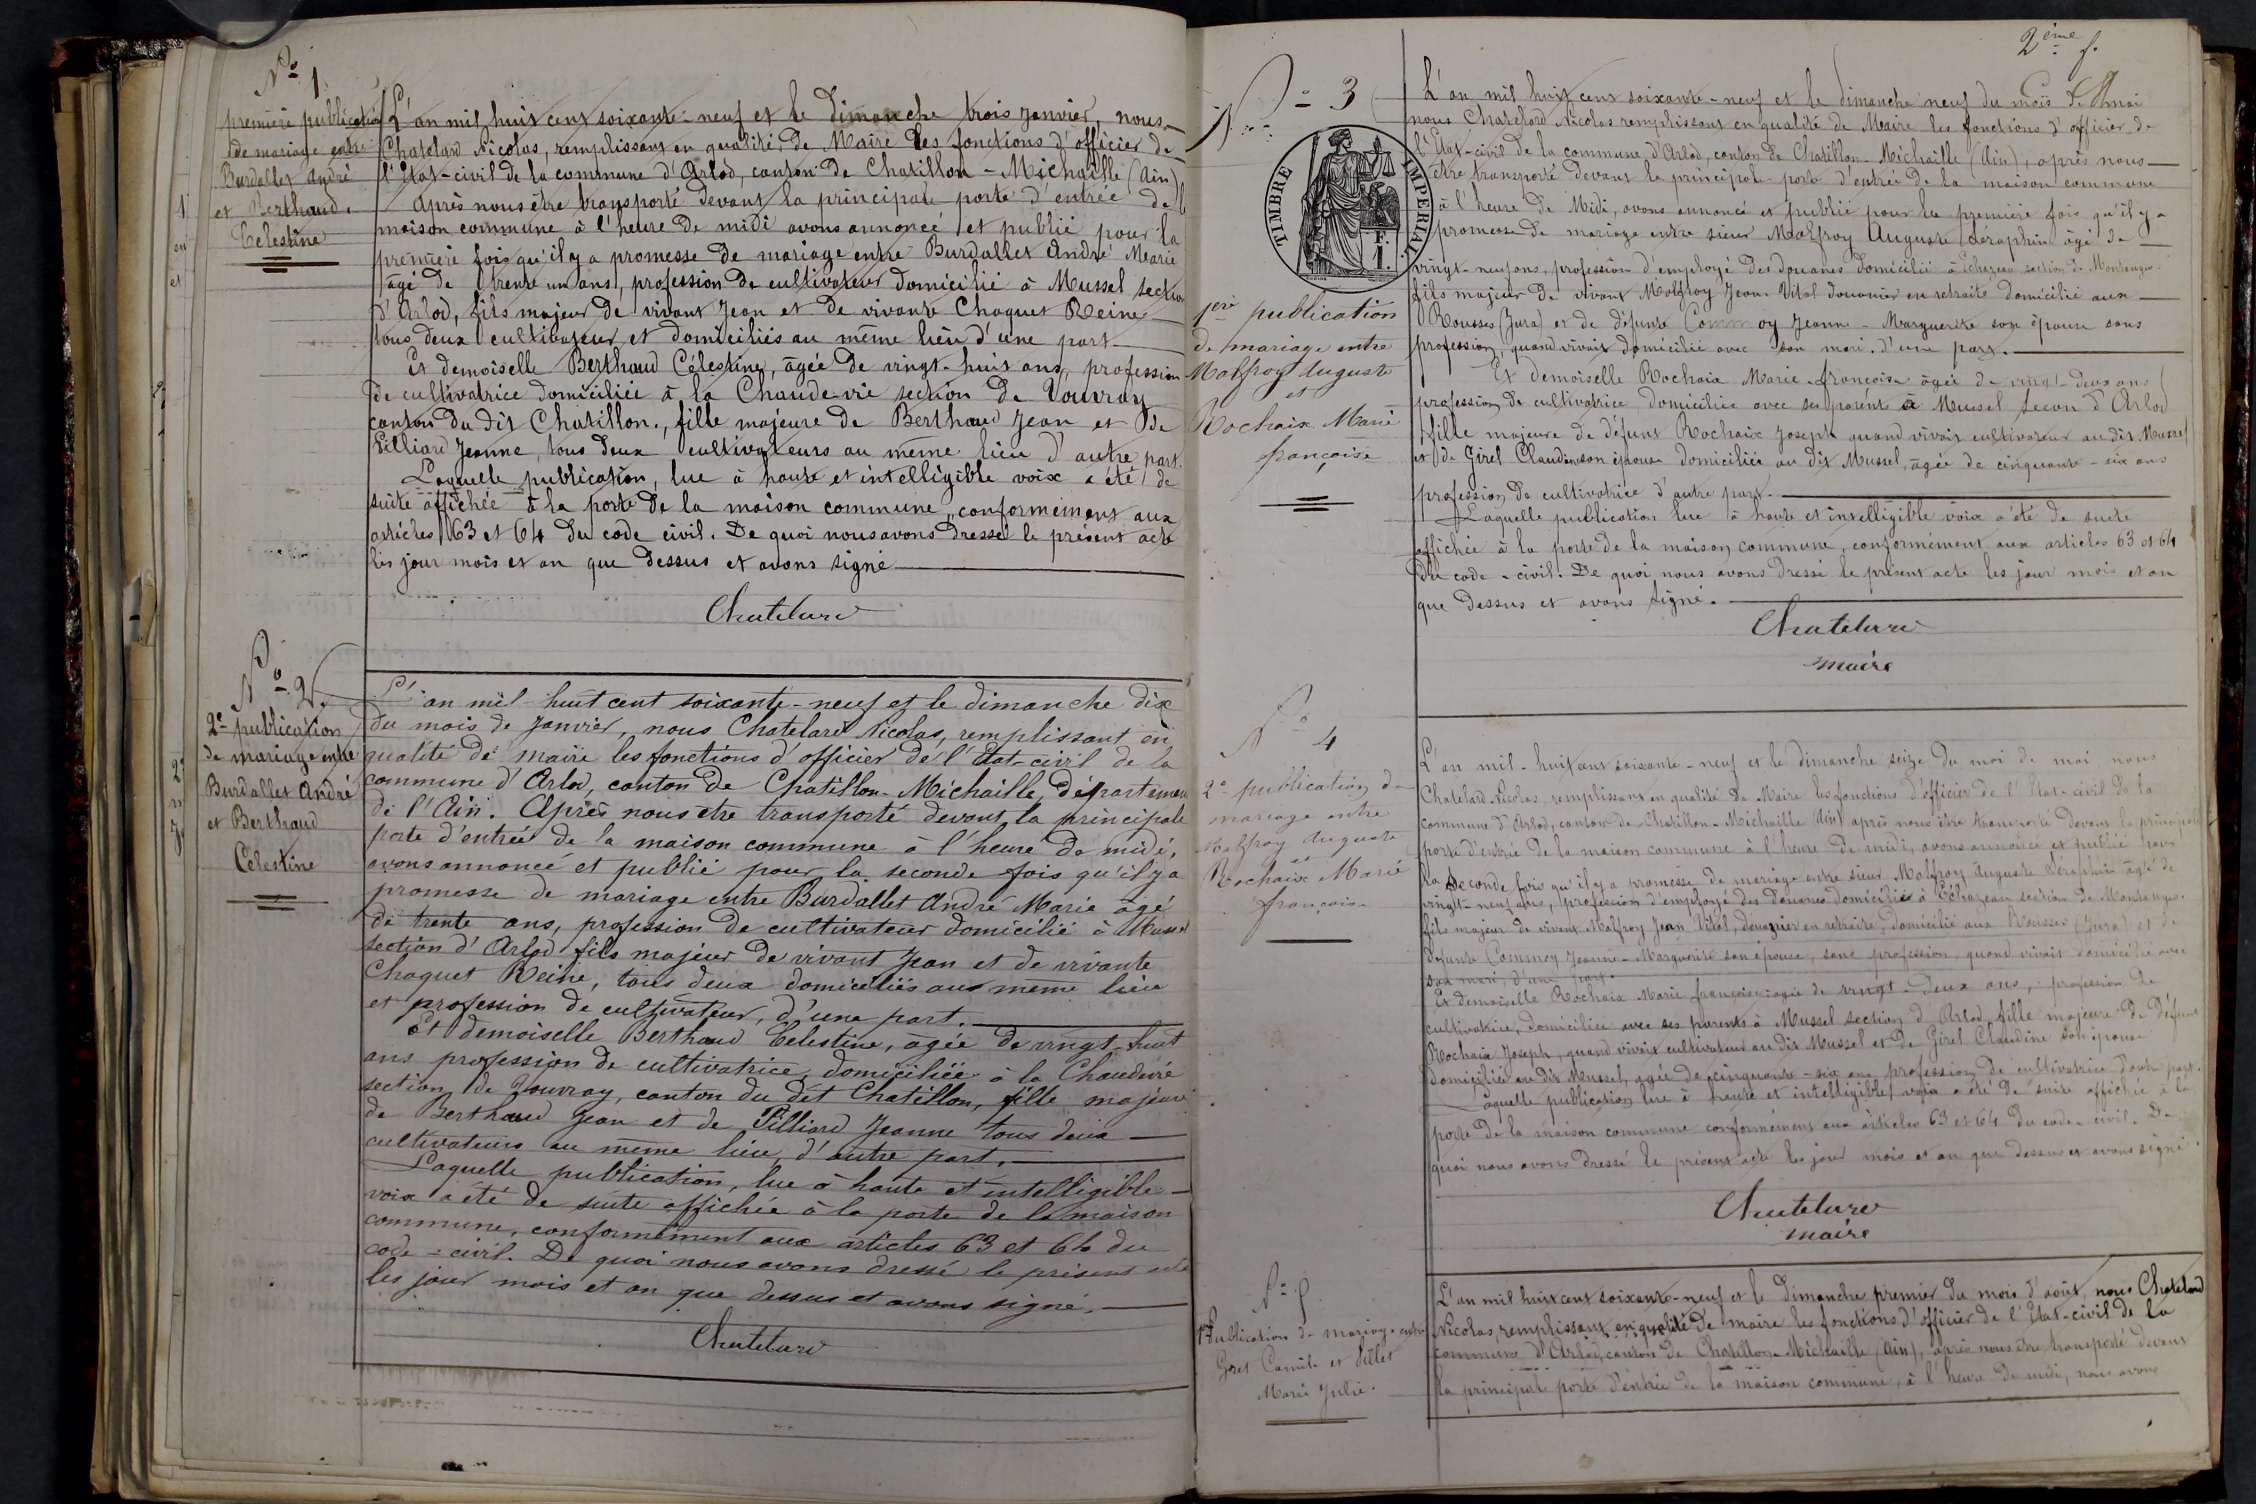 No 1
première publication
de mariage entre
Burdallet André
et Berthaud
Célestine
L'an mil huit cent soixante-neuf et le dimanche trois janvier, nous
Chatelard Nicolas, remplissant en qualité de Maire les fonctions d'officier de
l'Etat-civil de la commune d'Arlod, canton de Chatillon-Michaille (Ain)
Après nous être transporté devant la principale porte d'entrée de la
maison commune à l'heure de midi avons annoncé et publié pour la
première fois qu'il y a promesse de mariage entre Burdallet André Marie
âgé de trente un ans, profession de cultivateur domicilié à Mussel section
d'Arlod, fils majeur de vivant Jean et de vivante Chaquet Reine
tous deux cultivateur et domiciliés au même lieu d'une part
Et demoiselle Berthaud Célestine, âgée de vingt-huit ans, profession
de cultivatrice domiciliée à la Chaude-vie section de Vouvray
canton du dit Chatillon, fille majeure de Berthaud Jean et de
Filliard Jeanne, tous deux cultivateurs au même lieu d'autre part.
Laquelle publication, lue à haute et intelligible voix a été de
suite affichée à la porte de la maison commune, conformément aux
articles 63 et 64 du code civil. De quoi nous avons dressé le présent acte
les jour mois et an que dessus et avons signé
Chatelard
No 2
2e publication
de mariage entre
Burdallet André
et Berthaud
Célestine
L'an mil huit cent soixante-neuf et le dimanche dix
du mois de Janvier, nous Chatelard Nicolas, remplissant en
qualité de maire les fonctions d'officier de l'Etat-civil de la
commune d'Arlod, canton de Chatillon-Michaille, département
de l'Ain. Après nous être transporté devant la principale
porte d'entrée de la maison commune à l'heure de midi,
avons annoncé et publié pour la seconde fois qu'il y a
promesse de mariage entre Burdallet André Marie âgé
de trente ans, profession de cultivateur domicilié à Mussel
section d'Arlod fils majeur de vivant Jean et de vivante
Chaquet Reine, tous deux domiciliés aux même lieu
et profession de cultivateur, d'une part.
Et demoiselle Berthaud Celestine, agée de vingt-huit
ans profession de cultivatrice, domiciliée à la Chaudevie
section de Vouvray, canton du dit Chatillon, fille majeure
de Berthaud Jean et de Filliard Jeanne tous deux
cultivateurs au même lieu, d'autre part.
Laquelle publication, lue à haute et intelligible
voix a été de suite affichée à la porte de la maison
commune, conformément aux articles 63 et 64 du
code-civil. De quoi nous avons dressé le présent acte
les jour mois et an que dessus et avons signé.
Chatelard
2ème f.
No 3
TIMBRE IMPERIAL
1 F.
1ère publication
de mariage entre
Molfroy Auguste
et
Rochaix Marie
françoise
L'an mil huit cent soixante-neuf et le dimanche neuf du mois de mai
nous Chatelard Nicolas remplissant en qualité de Maire les fonctions d'officier de
l'Etat-civil de la commune d'Arlod, canton de Chatillon-Michaille (Ain), après nous
être transporté devant la principale porte d'entrée de la maison commune
à l'heure de Midi, avons annoncé et publié pour la première fois qu'il y a
promesse de mariage entre sieur Molfroy Auguste Séraphin âgé de
vingt-neuf ans, profession d'employé des douanes domicilié à Echazeau section de Montanges
fils majeur de vivant Molfroy Jean Vital douanier en retraite domicilié aux
Rousses (Jura) et de défunte Commoy Jeanne-Marguerite son épouse sans
profession, quand vivait domiciliée avec son mari. d'une part.
Et demoiselle Rochaix Marie françoise âgée de vingt-deux ans
profession de cultivatrice domiciliée avec ses parents à Mussel section d'Arlod
fille majeure de défunt Rochaix Joseph quand vivait cultivateur au dit Mussel
et de Girel Claudine son épouse domiciliée au dit Mussel, agée de cinquante-six ans
profession de cultivatrice d'autre part.
Laquelle publication lue à haute et intelligible voix a été de suite
affichée à la porte de la maison commune, conformément aux articles 63 et 64
du code-civil. De quoi nous avons dressé le présent acte les jour mois et an
que dessus et avons signé.
Chatelard
maire
No 4
2e publication de
mariage entre
Molfroy Auguste
et
Rochaix Marie
françoise
L'an mil-huit cent soixante-neuf et le dimanche seize du moi de mai nous
Chatelard Nicolas, remplissant en qualité de Maire les fonctions d'officier de l'Etat-civil de la
commune d'Arlod, canton de Chatillon-Michaille (Ain) après nous être transporté devant la principale
porte d'entrée de la maison commune à l'heure de midi, avons annoncé et publié pour
la seconde fois qu'il y a promesse de mariage entre sieur Molfroy Auguste Séraphin âgé de
vingt-neuf ans, profession d'employé des douanes domicilié à Echazeau section de Montanges.
fils majeur de vivant Molfroy Jean Vital, douanier en retraite, domicilié aux Rousses (Jura) et de
défunte Commoy Jeanne-Marguerite son épouse, sans profession, quand vivait domiciliée avec
son mari, d'une part.
Et demoiselle Rochaix Marie françoise agée de vingt-deux ans, profession de
cultivatrice, domiciliée avec ses parents à Mussel section d'Arlod, fille majeure de défunt
Rochaix Joseph, quand vivait cultivateur au dit Mussel et de Girel Claudine son épouse
domiciliée au dit Mussel, agée de cinquante-six ans profession de cultivatrice d'autre part.
Laquelle publication lue à haute et intelligible voix a été de suite affichée à la
porte de la maison commune conformément aux articles 63 et 64 du code-civil. De
quoi nous avons dressé le présent acte les jour mois et an que dessus et avons signé.
Chatelard
maire
No 5
1ère Publication de mariage entre
Goret Camile et Billet
Marie Julie.
L'an mil huit cent soixante-neuf et le dimanche premier du mois d'août, nous Chatelard
Nicolas, remplissant en qualité de maire les fonctions d'officier de l'Etat-civil de la
commune d'Arlod, canton de Chatillon-Michaille (Ain), après nous être transporté devant
la principale porte d'entrée de la maison commune, à l'heure de midi, nous avons